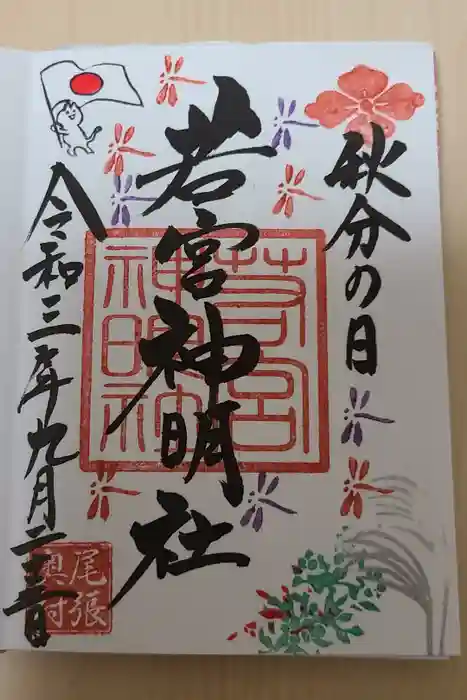 秋分の日
若宮神明社
若宮
神明社
令和三年九月二十三日
尾張
奥村